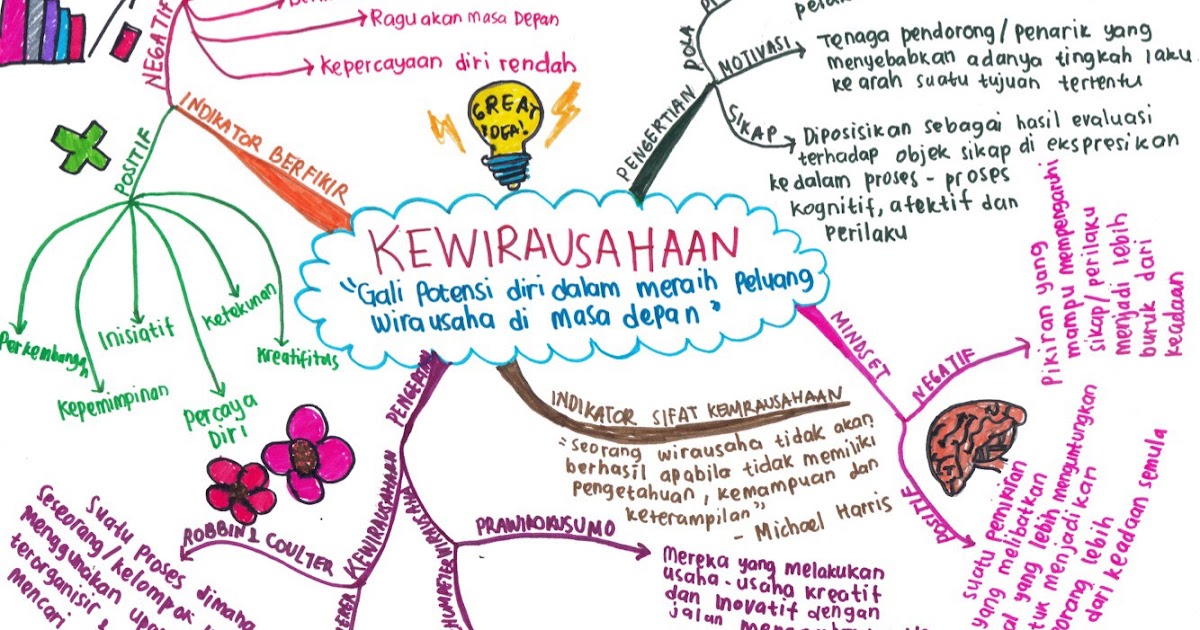 NEGATIF
Ragu akan masa Depan
Kepercayaan diri rendah
INDIKATOR BERFIKIR
POSITIF
Perkembangan
Kepemimpinan
Inisiatif
Percaya
Diri
Ketekunan
Kreatifitas
GREAT
IDEA!
PENGERTIAN
POLA
MOTIVASI
Tenaga pendorong/penarik yang
menyebabkan adanya tingkah laku
ke arah suatu tujuan tertentu
SIKAP
Diposisikan sebagai hasil evaluasi
terhadap objek sikap di ekspresikan
ke dalam proses - proses
kognitif, afektif dan
perilaku
KEWIRAUSAHAAN
"Gali Potensi diri dalam meraih Peluang
wirausaha di masa depan"
MINDSET
NEGATIF
Pikiran yang
mampu mempengaruhi
sikap/perilaku
menjadi lebih
buruk dari
keadaan
POSITIF
suatu pemikiran
yang melibatkan
yang lebih menguntungkan
menjadikan
lebih
dari keadaan semula
INDIKATOR SIFAT KEWIRAUSAHAAN
"seorang wirausaha tidak akan
berhasil apabila tidak memiliki
pengetahuan, kemampuan dan
keterampilan"
- Michael Harris
KEWIRAUSAHAAN
ROBBIN & COULTER
Suatu Proses dimana
Seseorang/kelompok
menggunakan
terorganisir &
mencari
PRAWIROKUSUMO
Mereka yang melakukan
usaha-usaha kreatif
dan Inovatif dengan
jalan